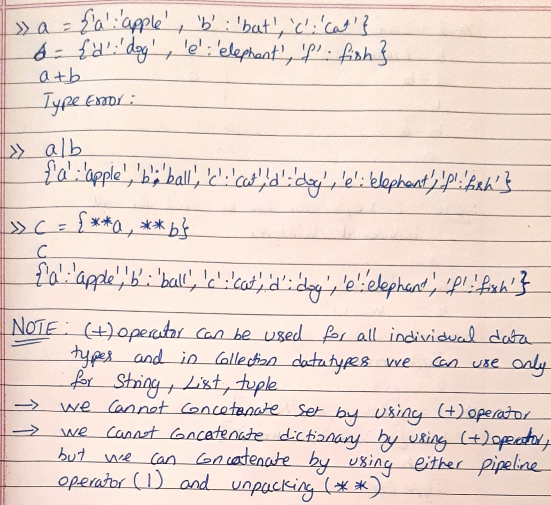 >> a = {'a':'apple', 'b':'bat', 'c':'cat'}
b = {'d':'dog', 'e':'elephant', 'f': fish}
a+b
Type Error:
>> a|b
{'a':'apple','b':'ball','c':'cat','d':'dog','e':'elephant','f':'fish'}
>> C = {**a, **b}
C
{'a':'apple','b':'ball','c':'cat,'d':'dog','e':'elephant','f':'fish'}
NOTE: (+)operator can be used for all individual data
types and in Collection datatypes we can use only
for String, List, tuple
→ we cannot Concatenate Set by using (+)operator
→ we cannot Concatenate dictionary by using (+)operator,
but we can Concatenate by using either pipeline
operator (|) and unpacking (**)